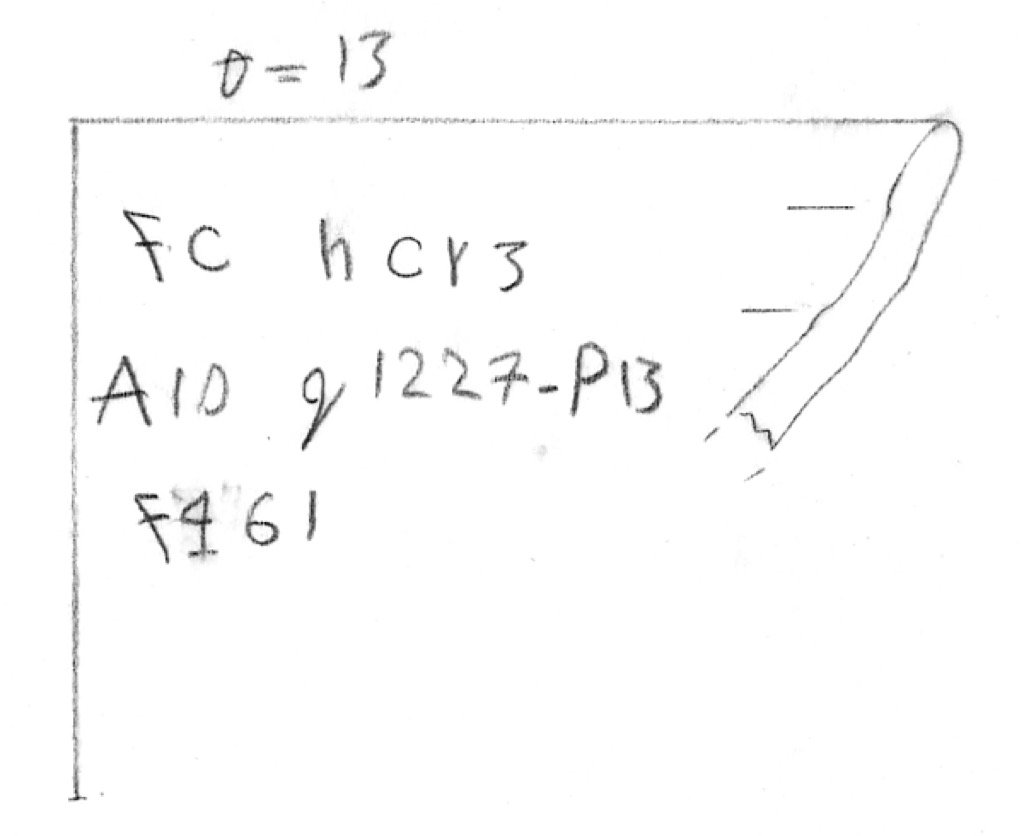 σ = 13
FC hcr3
A10 g 1227-P13
F4 61